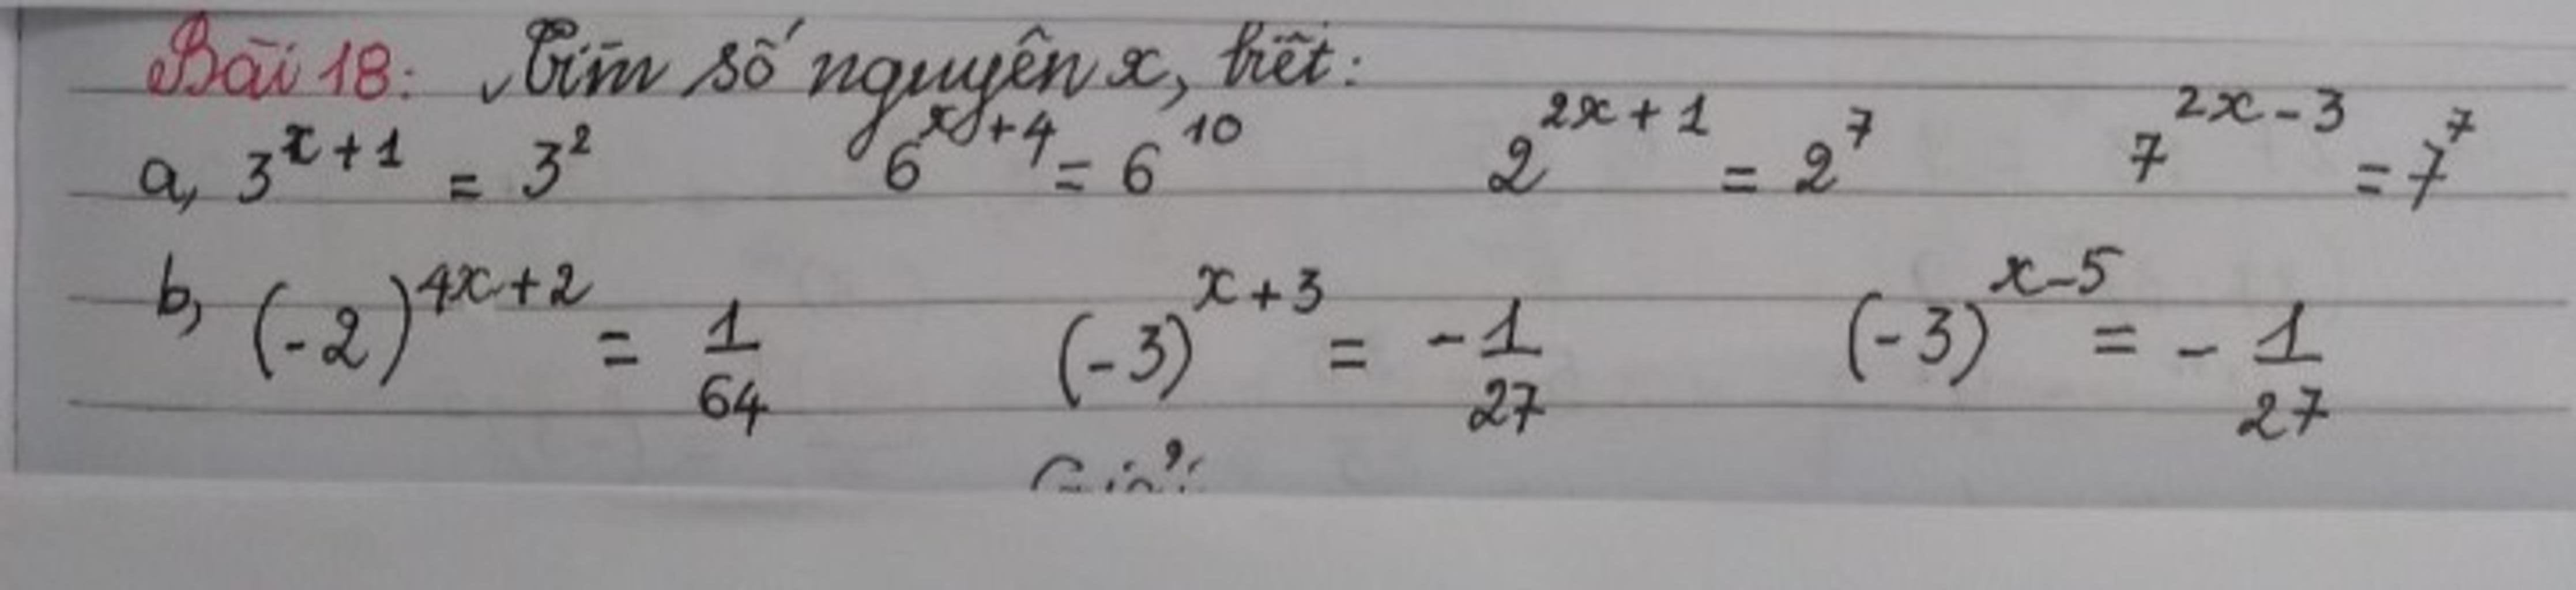 Bài 18: Tìm số nguyên x, biết:
a, 3^{x+1} = 3^2 6^{x+4} = 6^{10} 2^{2x+1} = 2^7 7^{2x-3} = 7^7
b, (-2)^{4x+2} = 1/64 (-3)^{x+3} = -1/27 (-3)^{x-5} = -1/27